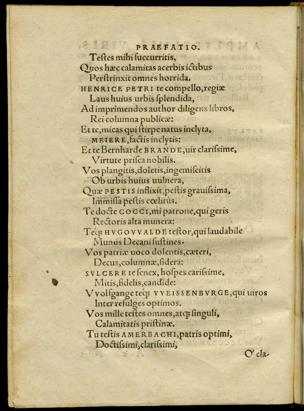 PRAEFATIO.
Testes mihi succurritis,
Quos hæc calamitas acerbis ictibus
Perstrinxit omnes horrida.
HENRICE PETRI te compello, regiæ
Laus huius urbis splendida,
Ad imprimendos author diligens libros,
Rei columna publicæ:
Et te, micas qui stirpe natus inclyta,
MEIERE, factis inclytis:
Et te Bernharde BRANDE, uir clarissime,
Virtute prisca nobilis.
Vos plangitis, doletis, ingemiscitis
Ob urbis huius uulnera,
Quæ PESTIS inflixit, pestis grauissima,
Immissa pestis cœlitus.
Te docte COCCI, mi patrone, qui geris
Rectoris alta munera:
Teq́; HVGOVVALDE testor, qui laudabile
Munus Decani sustines.
Vos patriæ uoco dolentis, cæteri,
Decus, columnæ, sidera:
SVLCERE te senex, hospes carissime,
Mitis, fidelis, candide:
Vuolfgange teq́; VVEISSENBVRGE, qui uiros
Inter refulges optimos.
Vos mille testes omnes, atq́; singuli,
Calamitatis pristinæ.
Tu testis AMERBACHI, patris optimi,
Doctissimi, clarissimi,
O' cla-